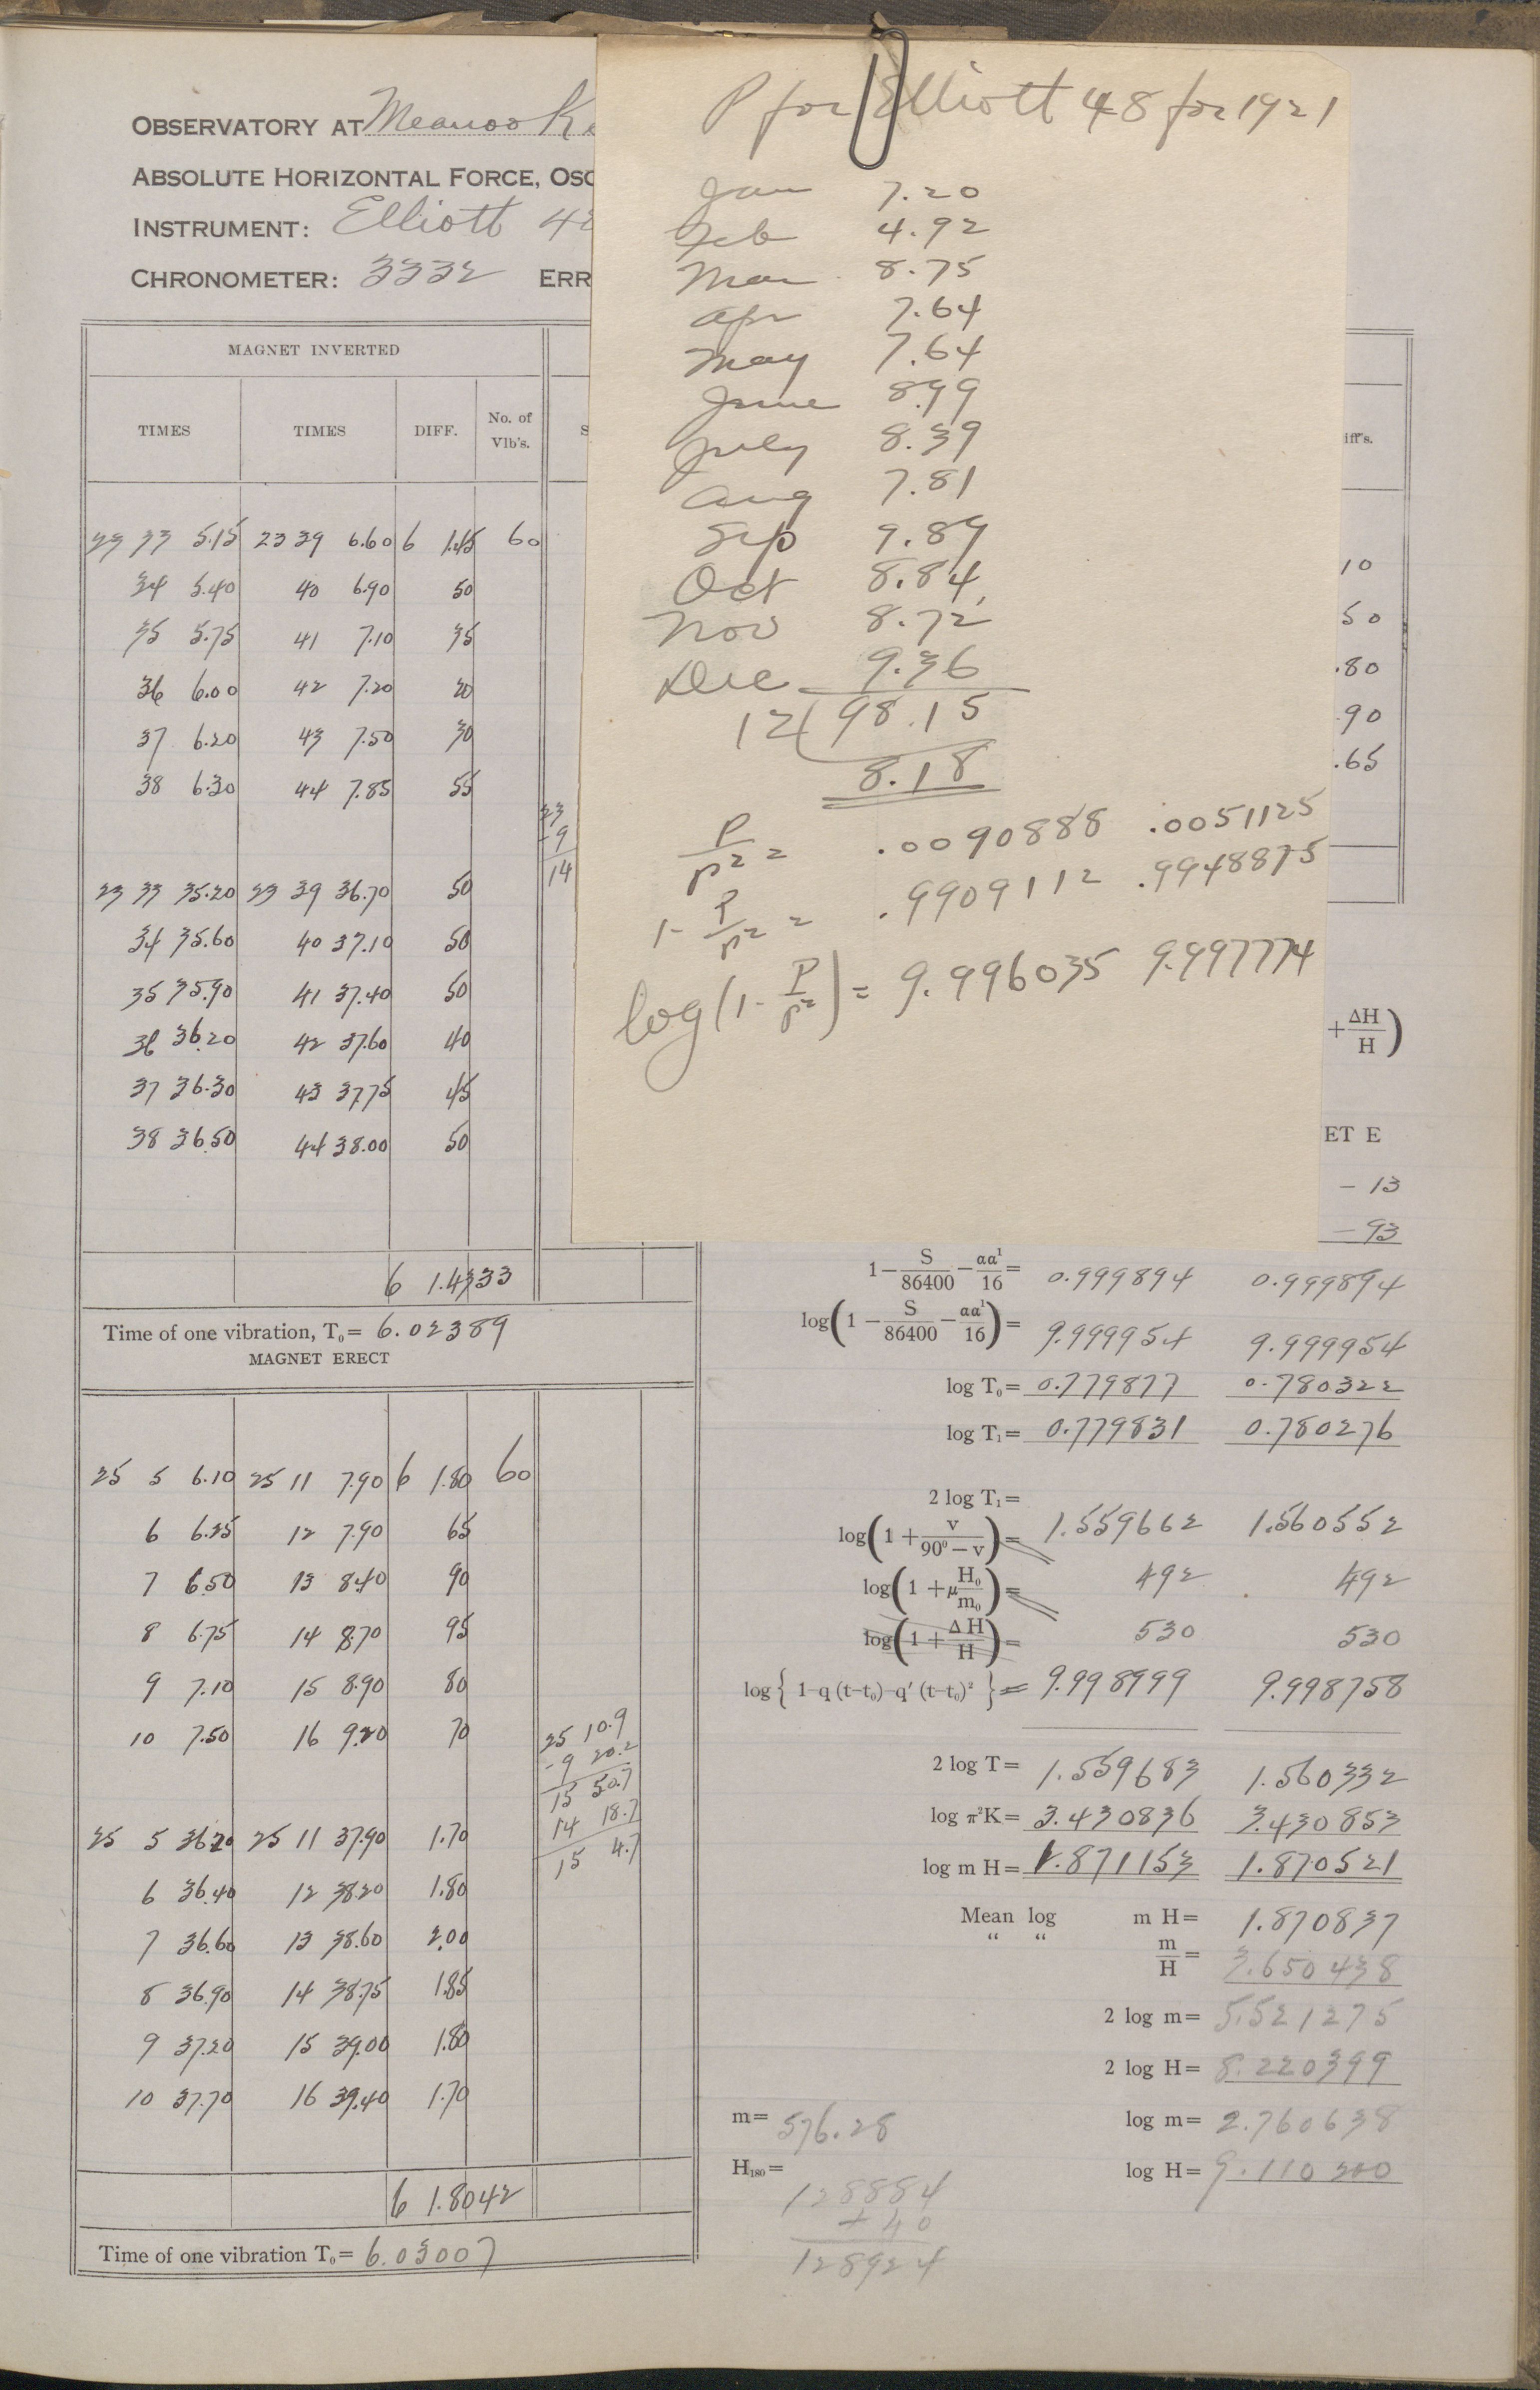 P for Elliott 48 for 1921
Jan 7.20
Feb 4.92
Mar 8.75
Apr 7.64
May 7.64
June 8.99
July 8.39
Aug 7.81
Sep 9.89
Oct 8.84
Nov 8.72
Dec 9.36
12(98.15
8.18
P/r² = .0090888 .0051125
1- P/r² = .9909112 .9948875
log(1- P/r²) = 9.996035 9.997774
OBSERVATORY AT Meanook
ABSOLUTE HORIZONTAL FORCE, OSC
INSTRUMENT: Elliott 48
CHRONOMETER: 3332 ERR
MAGNET INVERTED
TIMES TIMES DIFF. No. of Vib's. S iff's.
23 33 5.15 23 39 6.60 6 1.45 60
34 5.40 40 6.90 50 10
35 5.75 41 7.10 35 50
36 6.00 42 7.20 20 .80
37 6.20 43 7.50 30 90
38 6.30 44 7.85 55 .65
23
-9
14
23 33 35.20 23 39 36.70 50
34 35.60 40 37.10 50
35 35.90 41 37.40 50
36 36.20 42 37.60 40
37 36.30 43 37.75 45
38 36.50 44 38.00 50
6 1.4333
Time of one vibration, T₀= 6.02389
MAGNET ERECT
25 5 6.10 25 11 7.90 6 1.80 60
6 6.25 12 7.90 65
7 6.50 13 8.40 90
8 6.75 14 8.70 95
9 7.10 15 8.90 80
10 7.50 16 9.20 70
25 10.9
-9 20.2
15 50.7
14 18.7
15 4.7
25 5 36.20 25 11 37.90 1.70
6 36.40 12 38.20 1.80
7 36.60 13 38.60 2.00
8 36.90 14 38.75 1.85
9 37.20 15 39.00 1.80
10 37.70 16 39.40 1.70
6 1.8042
Time of one vibration T₀= 6.03007
+ΔH/H)
ET E
- 13
- 93
1 - S/86400 - αα¹/16 = 0.999894 0.999894
log(1 - S/86400 - αα¹/16) = 9.999954 9.999954
log T₀= 0.779877 0.780322
log T₁= 0.779831 0.780276
2 log T₁= 1.559662 1.560552
log(1 + v/90⁰-v) = 492 492
log(1 + μ H₀/m₀) = 530 530
log(1 + ΔH/H) =
log{ 1-q (t-t₀)-q' (t-t₀)² } = 9.998999 9.998758
2 log T= 1.559683 1.560332
log π²K= 3.430836 3.430853
log m H= 1.871153 1.870521
Mean log m H= 1.870837
“ “ m/H = 3.650438
2 log m= 5.521275
2 log H= 8.220399
log m= 2.760638
log H= 9.110200
m= 576.28
H₁₈₀=
128884
+ 40
128924